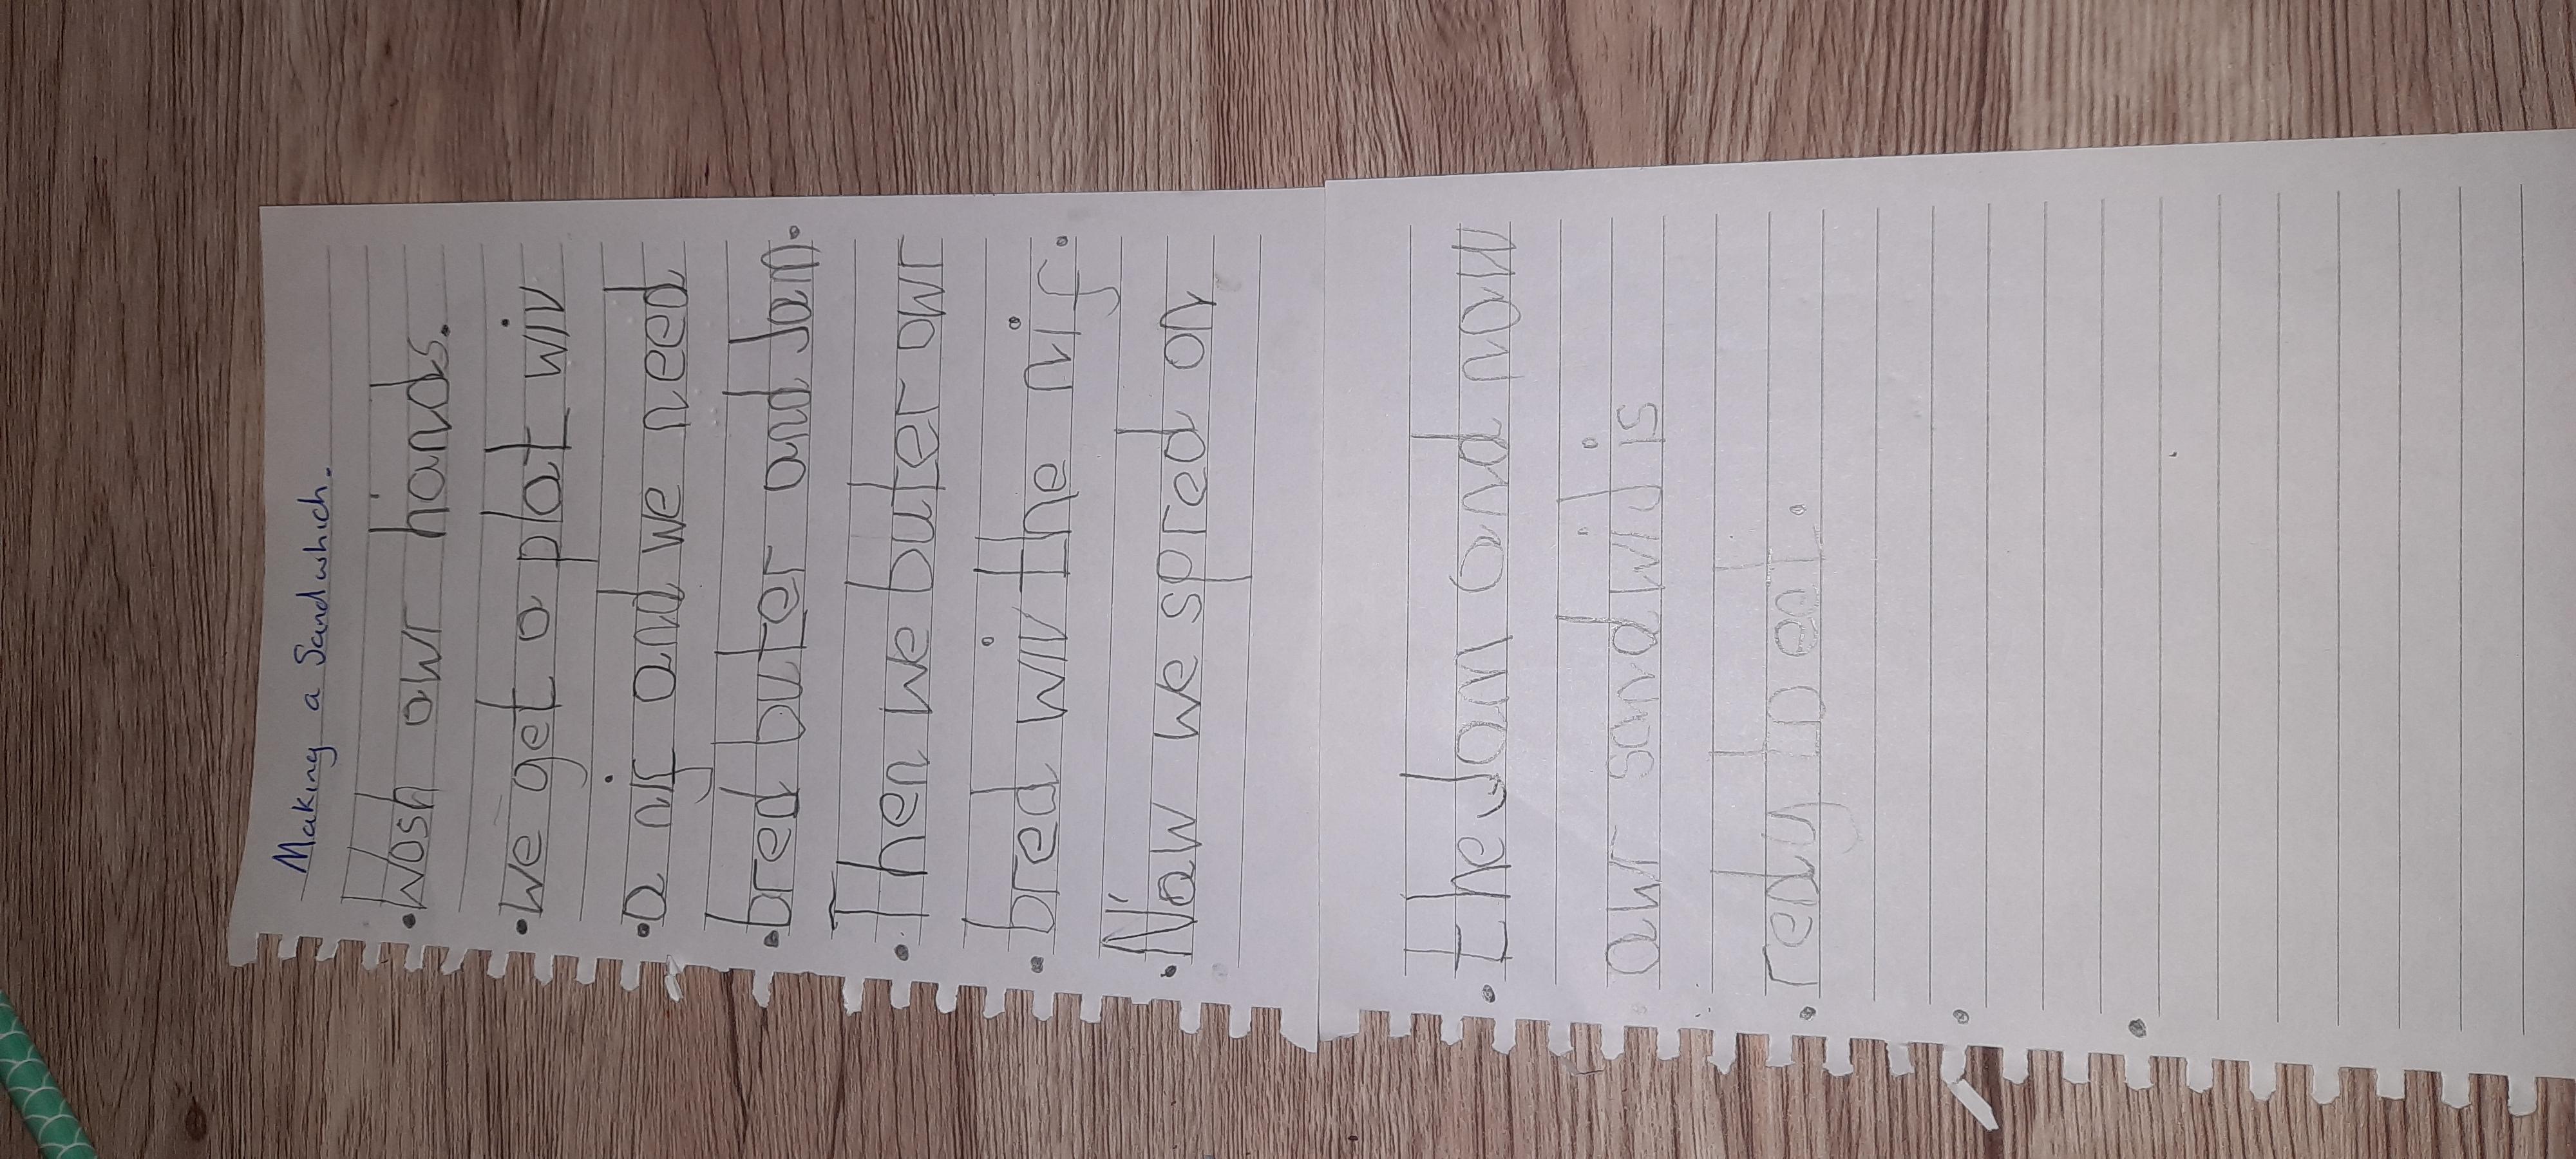 Making a Sandwhich.
Wosh owr hands.
we get a plat wiv
a nif and we need
bred buter and Jam.
Then we buter owr
bred wiv the nif.
Naw we spred on
the Jam and naw
owr sandwij is
redy to eat.